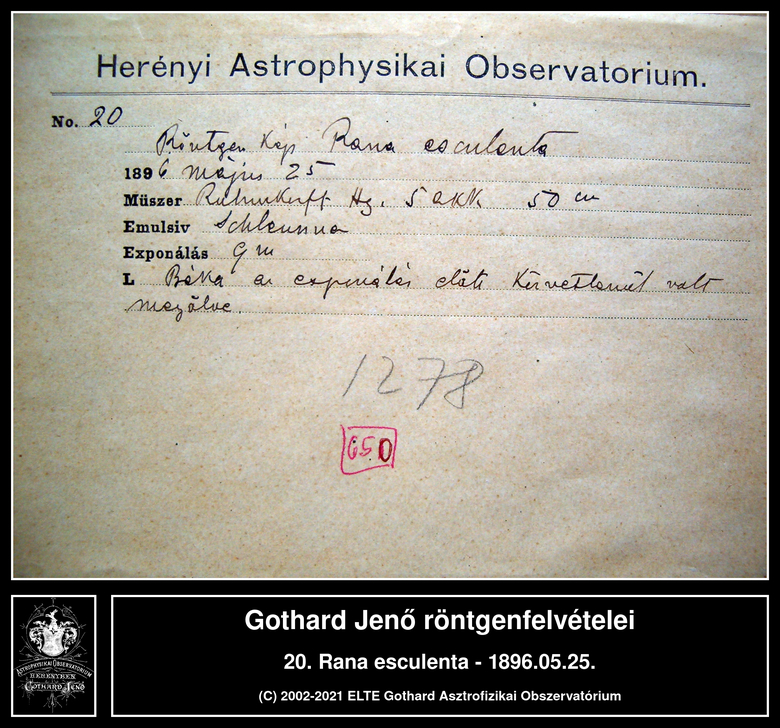 Herényi Astrophysikai Observatorium.
No. 20
Röntgen Kép Rana esculenta
1896 május 25
Müszer Ruhmkorff Hg. 5 akk. 50 cm
Emulsiv Schleussner
Exponálás 9 m
L Béka az exponálás előtt közvetlenül volt
megölve.
1278
650
ASTROPHYSIKAI OBSERVATORIUM
HERÉNYBEN
GOTHARD JENŐ
Gothard Jenő röntgenfelvételei
20. Rana esculenta - 1896.05.25.
(C) 2002-2021 ELTE Gothard Asztrofizikai Obszervatórium